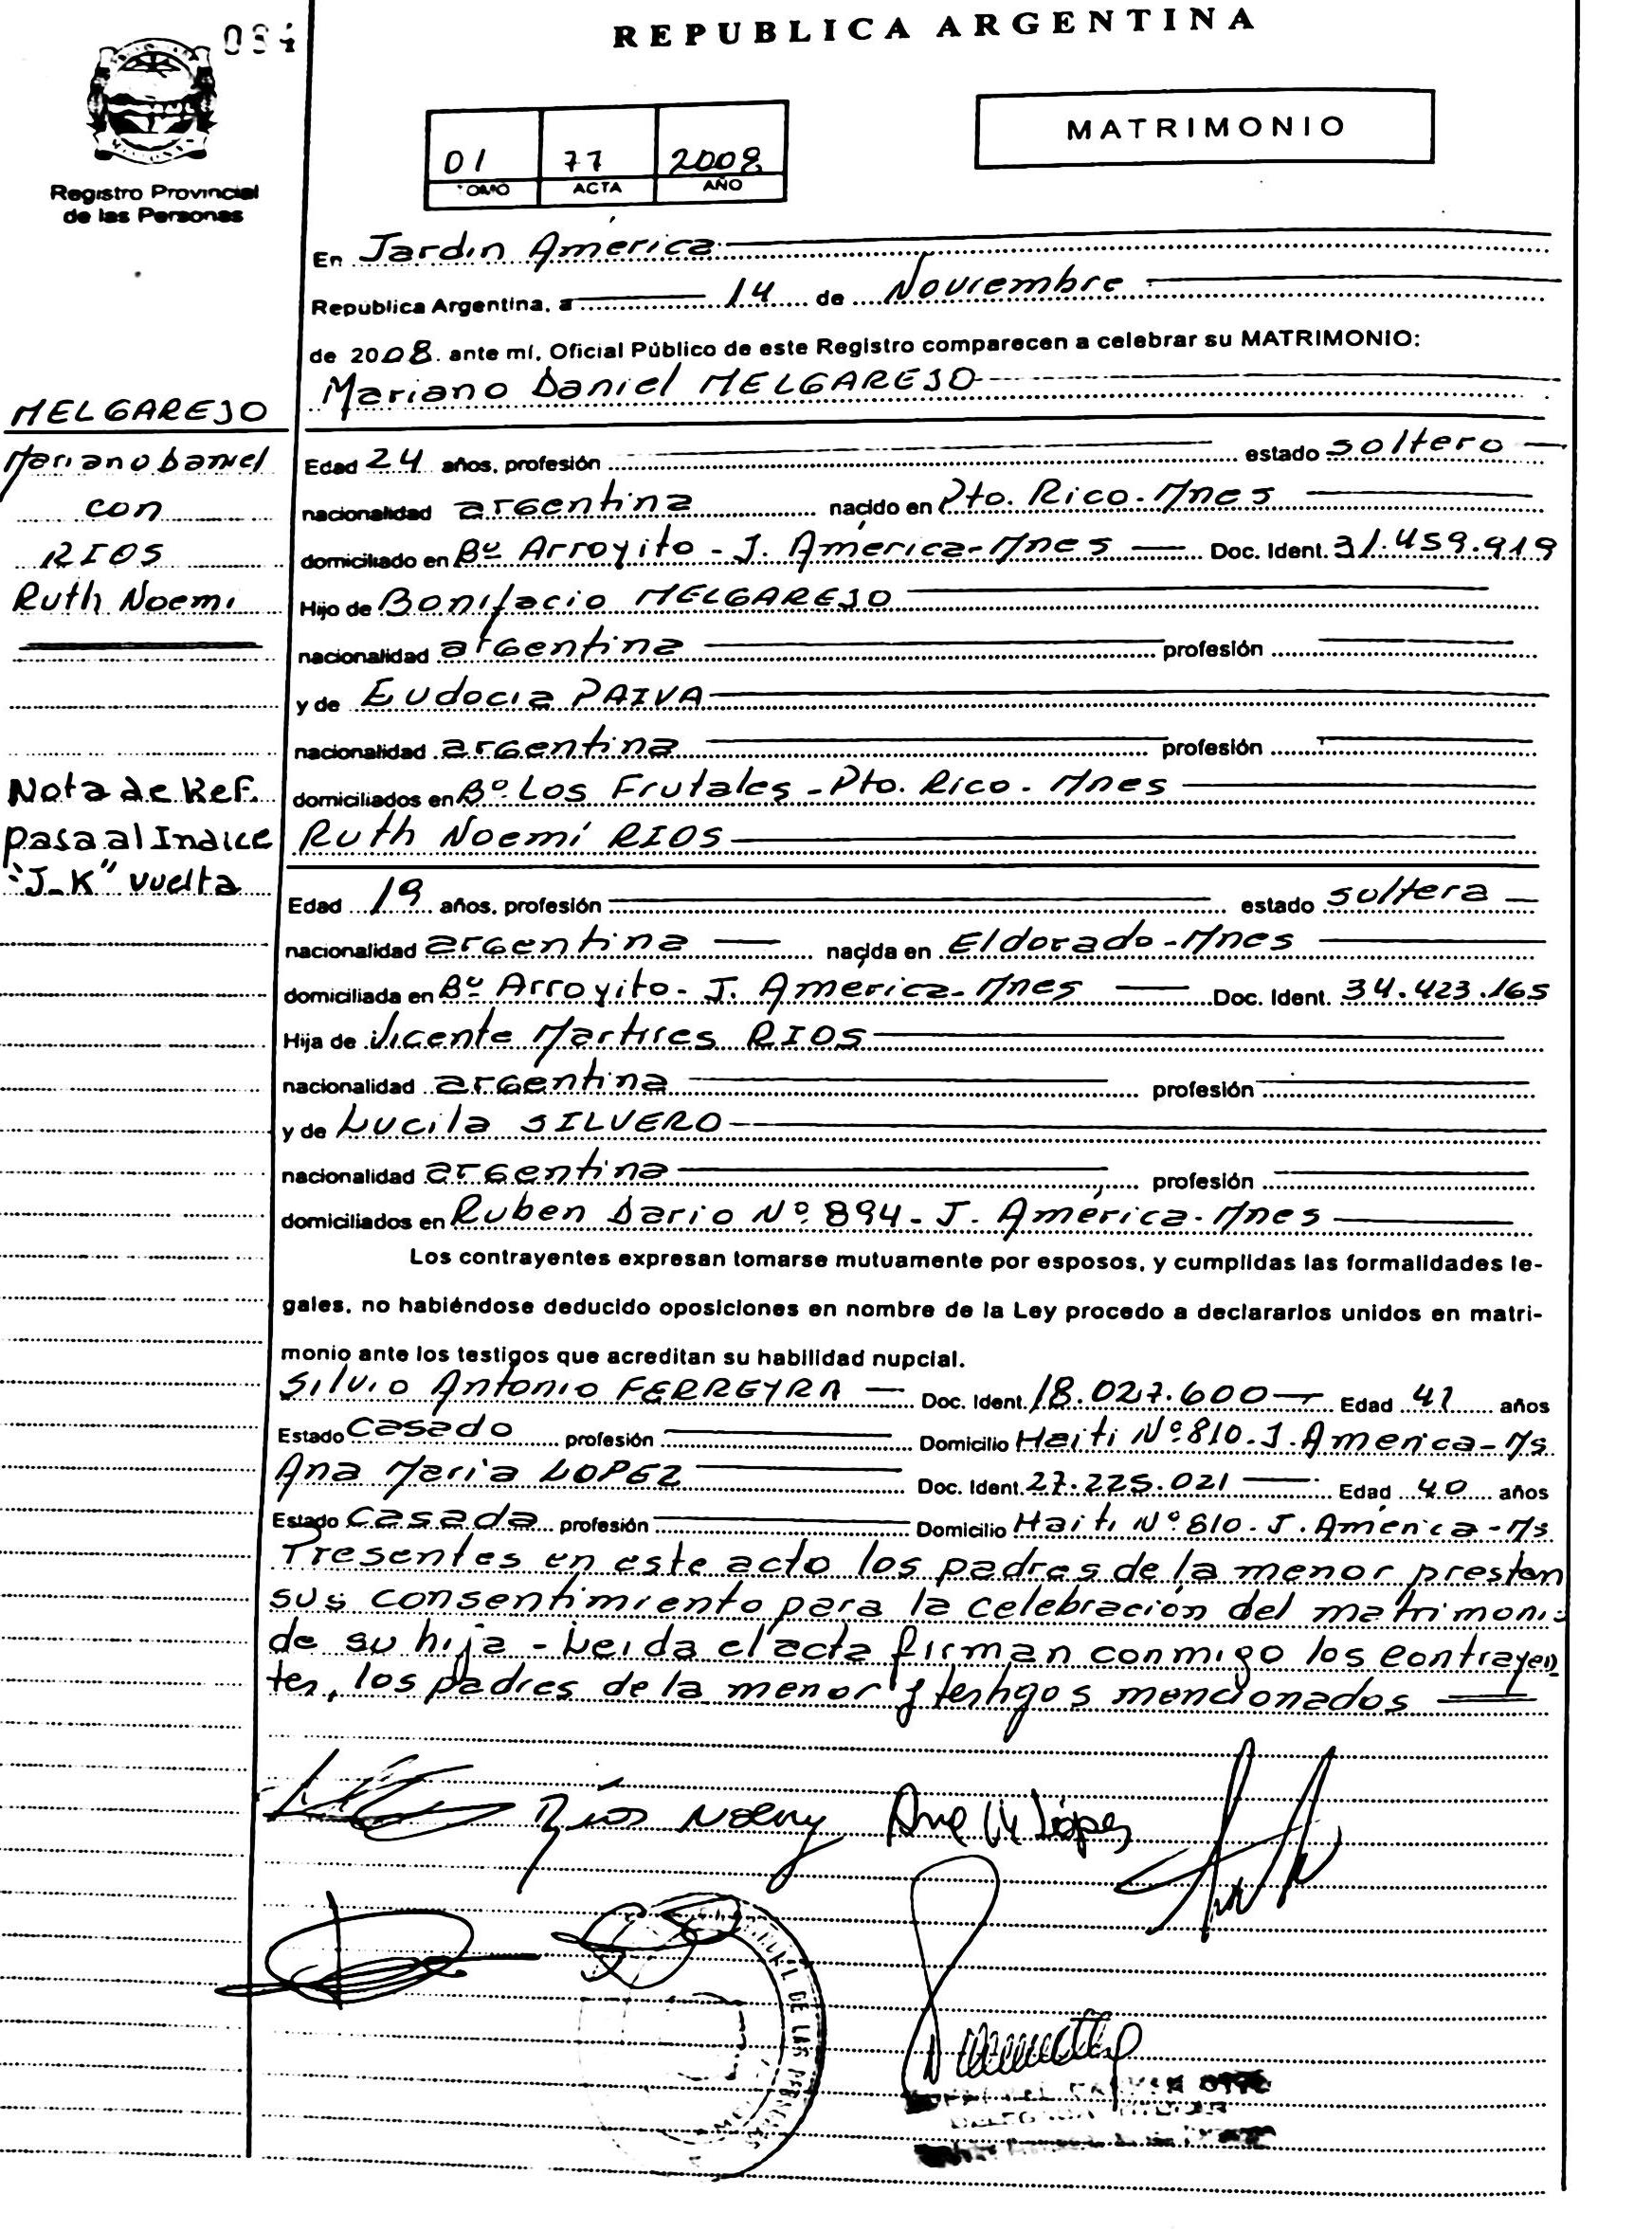 084
REPUBLICA ARGENTINA
MATRIMONIO
01 77 2008
TOMO ACTA AÑO
Registro Provincial
de las Personas
En Jardín América
Republica Argentina, a 14 de Noviembre
de 2008. ante mí, Oficial Público de este Registro comparecen a celebrar su MATRIMONIO:
Mariano Daniel MELGAREJO
MELGAREJO
Mariano Daniel
con
RIOS
Ruth Noemi
Edad 24 años, profesión estado soltero
nacionalidad argentina nacido en Pto. Rico - Mnes
domiciliado en Bº Arroyito - J. América - Mnes Doc. Ident. 31.459.919
Hijo de Bonifacio MELGAREJO
nacionalidad argentina profesión
y de Eudocia PAIVA
nacionalidad argentina profesión
domiciliados en Bº Los Frutales - Pto. Rico - Mnes
Nota de Ref.
pasa al Indice
"J-K" vuelta
Ruth Noemí RIOS
Edad 19 años, profesión estado soltera
nacionalidad argentina nacida en Eldorado - Mnes
domiciliada en Bº Arroyito - J. America - Mnes Doc. Ident. 34.423.165
Hija de Vicente Martires RIOS
nacionalidad argentina profesión
y de Lucila SILVERO
nacionalidad argentina profesión
domiciliados en Ruben Dario Nº 894 - J. América - Mnes
Los contrayentes expresan tomarse mutuamente por esposos, y cumplidas las formalidades le-
gales, no habiéndose deducido oposiciones en nombre de la Ley procedo a declararlos unidos en matri-
monio ante los testigos que acreditan su habilidad nupcial.
Silvio Antonio FERREYRA Doc. Ident. 18.027.600 Edad 41 años
Estado Casado profesión Domicilio Haiti Nº 810 - J. America - Ms
Ana Maria LOPEZ Doc. Ident. 27.225.021 Edad 40 años
Estado Casada profesión Domicilio Haiti Nº 810 - J. América - Ms
Presentes en este acto los padres de la menor prestan
sus consentimiento para la celebración del matrimonio
de su hija - Leida el acta firman conmigo los contrayen
tes, los padres de la menor y testigos mencionados
Ríos Noemy Ana M López
DE LAS PERSONAS